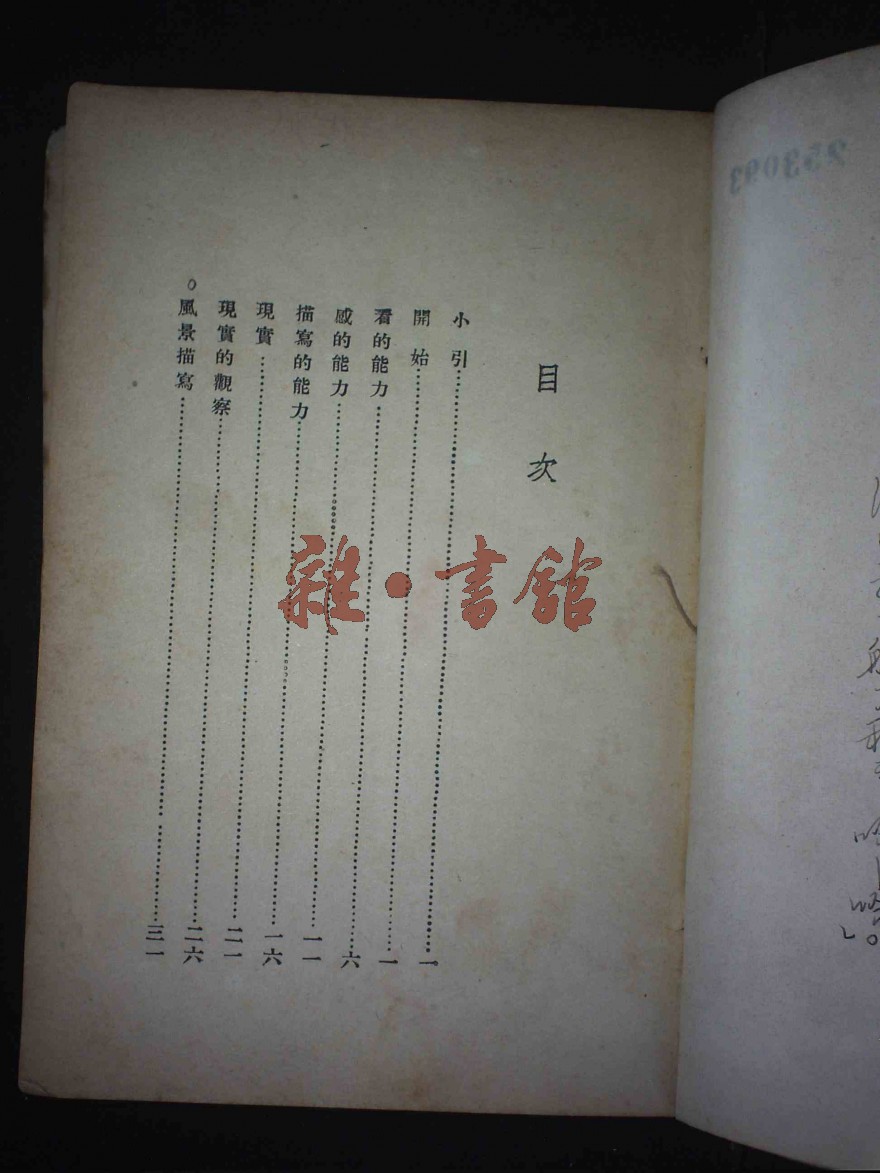 目次
小引……一
開始……一
看的能力……六
感的能力……一一
描寫的能力……一六
現實……二一
現實的觀察……二六
○風景描寫……三一
雜·書館
253093